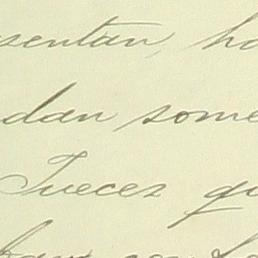 sentan, ha
dan some
Jueces qu